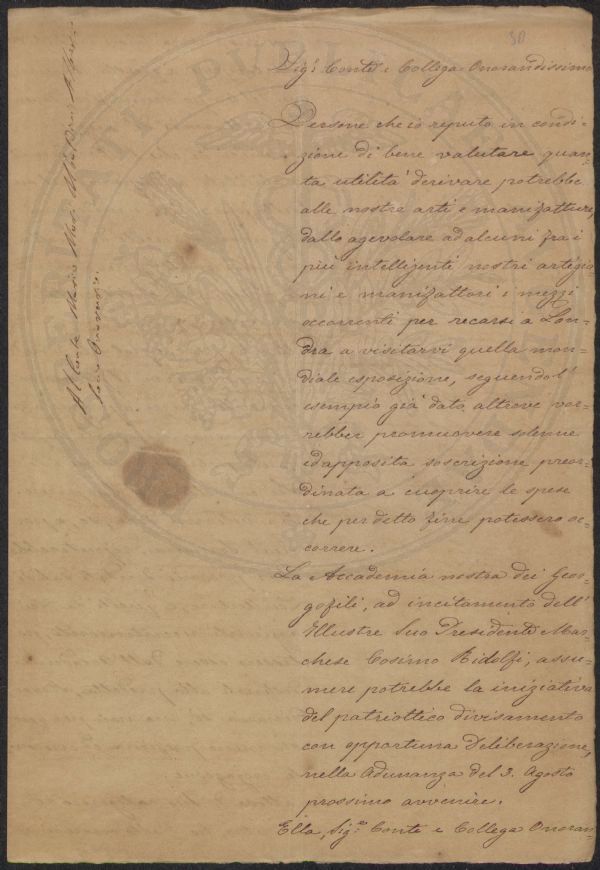 30
Sig.r Conte e Collega Onorandissimo
Persone che io reputo in condi-
zione di bene valutare quan-
ta utilità derivare potrebbe
alle nostre arti e manifatture,
dallo agevolare ad alcuni fra i
più intelligenti nostri artigia-
ni e manifattori i mezzi
occorrenti per recarsi a Lon-
dra a visitarvi quella mon-
diale esposizione, seguendo l'
esempio già dato altrove vor-
rebber promuovere solenne
ed apposita soscrizione preor-
dinata a cuoprire le spese
che per detto fine potessero oc-
correre.
La Accademia nostra dei Geor-
gofili, ad incitamento dell'
Illustre Suo Presidente Mar-
chese Cosimo Ridolfi, assu-
mere potrebbe la iniziativa
del patriottico divisamento
con opportuna Deliberazione,
nella Adunanza del 3. Agosto
prossimo avvenire.
Ella, Sig.re Conte e Collega Onoran-
Al Conte